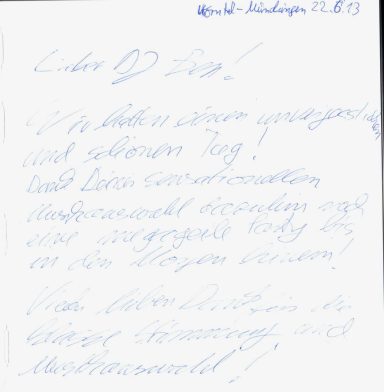 Korntal-Münchingen 22.6.13
Lieber DJ Ben!
Wir hatten einen unvergesslichen
und schönen Tag!
Dank Deiner sensationellen
Musikauswahl
eine megageile Party bis
in den Morgen hinein!
Vielen lieben Dank für die
Stimmung und
Musikauswahl!